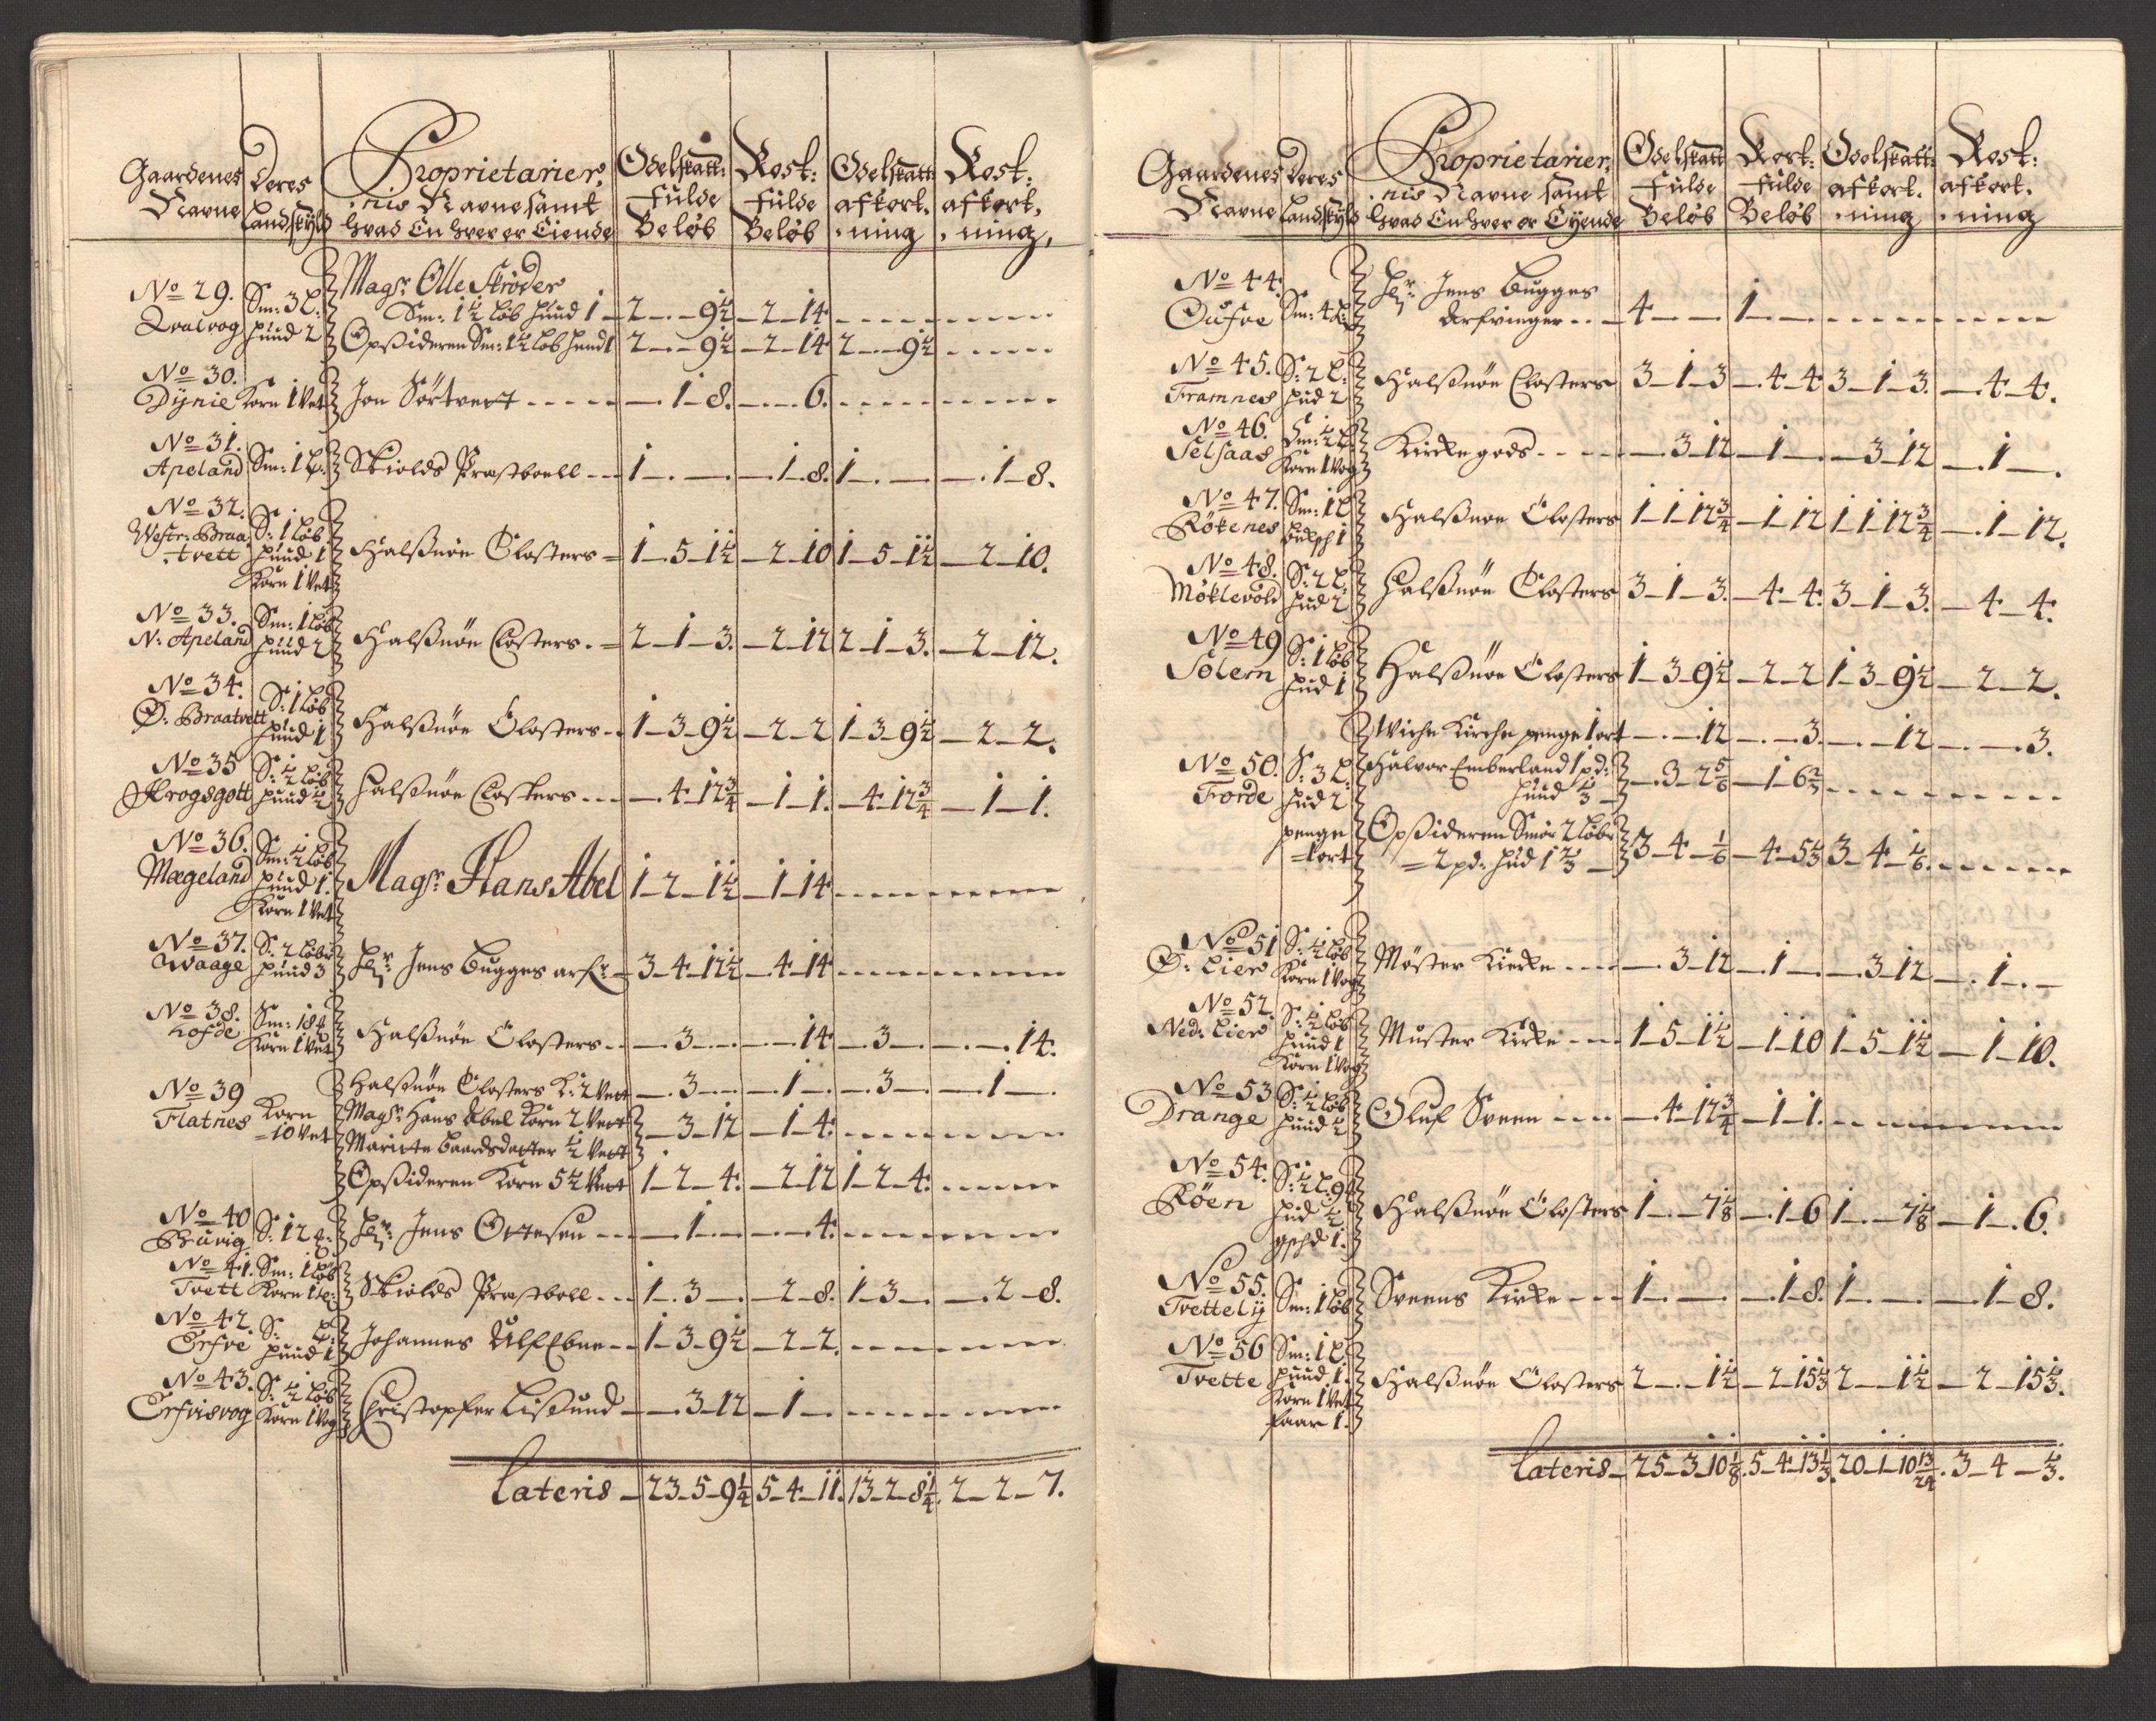 Gaardenes Navne | Deres Landskyld | Proprietariernis Navne samt hvad Enhver er Eiende | Odelskatt: fulde Beløb | Rost: fulde Beløb | Odelskatt: afkort.ning | Rost: afkort.ning,
No 29. Qvalvog | Sm: 3 L: huud 2 | Magr. Olle Ströder
Sm: 1 1/2 løb huud 1 | 2 - - 9 1/2 | - 2 - 14
Opsideren Sm: 1 1/2 løb huud 1 | 2 - - 9 1/2 | - 2 - 14 | 2 - - 9 1/2
No 30. Dynie | Korn 1 Vet | Jon Sörtvert | - 1 - 8. | - - 6.
No 31. Apeland | Sm: 1 L: | Skiolds Præstboell | 1 - - | - 1 - 8. | 1 - - | - 1 - 8.
No 32. Westr: Braa.tvett | S: 1 Løb huud 1 Korn 1 Vet | Halsnøe Closters | 1 - 5 - 1 1/2 | - 2 - 10 | 1 - 5 - 1 1/2 | - 2 - 10.
No 33. N: Apeland | Sm: 1 Løb huud 2 | Halsnøe Closters | 2 - 1 - 3. | - 2 - 12 | 2 - 1 - 3. | - 2 - 12.
No 34. Ö: Braatvett | S: 1 Løb huud 1 | Halsnøe Closters | 1 - 3 - 9 1/2 | - 2 - 2 | 1 - 3 - 9 1/2 | - 2 - 2.
No 35 Krogsgott | S: 1/2 Løb huud 1/2 | Halsnøe Closters | - 4 - 12 3/4 | - 1 - 1. | - 4 - 12 3/4 | - 1 - 1.
No 36. Mægeland | Sm: 1/2 Løb huud 1. Korn 1 Vet | Magr. Hans Abel | 1 - 2 - 1 1/2 | - 1 - 14
No 37. Waage | S: 2 Løber huud 3 | Hr. Jens Bugges arfr. | 3 - 4 - 12 1/2 | - 4 - 14
No 38. Hofde | Sm: 18 Korn 1 Vet | Halsnøe Closters | - 3 - | - - 14 | - 3 - | - - 14.
No 39 Flatnes | Korn 10 Vet | Halsnøe Closters K: 2 Vett | - 3 - | - 1 - | - 3 - | - 1 -
Magr. Hans Abel Korn 2 Vett
Maritte Baardsdatter 1/2 Vett | - 3 - 12 | - 1 - 4.
Opsideren Korn 5 1/2 Vett | 1 - 2 - 4. | - 2 - 12 | 1 - 2 - 4.
No 40 | S: 12 | Hr. Jens Ottesen | - 1 - | - - 4.
No 41. Tvett | Sm: 1 Løb Korn 1 | Skiolds Præstboll | 1 - 3 - | - 2 - 8. | 1 - 3 - | - 2 - 8.
No 42. Erfve | S: huud 1 | Johannes | 1 - 3 - 9 1/2 | - 2 - 2.
No 43. Erfvisvog | S: 1/2 Løb Korn 1 Vog | Christopfer Lissund | - 3 - 12 | - 1 -
Lateris - 23 - 5 - 9 1/4 | 5 - 4 - 11. | 13 - 2 - 8 1/4. | 2 - 2 - 7.
Gaardenes Navne | Deres Landskyld | Proprietariernis Navne samt hvad Enhver er Eyende | Odelskatt fulde Beløb | Rost: fulde Beløb | Odelskatt: afkort.ning | Rost: afkort.ning
No 44. | Sm: 4 L: | Hr. Jens Bugges
Arfvinger | 4 - - | 1 -
No 45. Framnes | S: 2 L: hud 2 | Halsnøe Closters | 3 - 1 - 3 | - 4 - 4 | 3 - 1 - 3. | - 4 - 4.
No 46. Selsaas | Sm: 1/2 L: Korn 1 Vog | Kirkegods | - 3 - 12 | - 1 - | - 3 - 12 | - 1 - .
No 47. Rökenes | Sm: 1 L | Halsnøe Closters | 1 - 1 - 12 3/4 | - 1 - 12 | 1 - 1 - 12 3/4 | - 1 - 12.
No 48. Möklevold | S: 2 L: hud 2 | Halsnøe Closters | 3 - 1 - 3. | - 4 - 4. | 3 - 1 - 3. | - 4 - 4.
No 49 Solem | S: 1 Løb hud 1 | Halsnøe Closters | 1 - 3 - 9 1/2 | - 2 - 2 | 1 - 3 - 9 1/2 | - 2 - 2.
Kirche penge 1 ort | - - 12 | - - 3. | - - 12 | - - 3.
No 50. Forde | S: 3 L: hud 2 penge 1 ort | Halvor Emberland 1 pd: huud 1/3 | - 3 - 2 5/6 | - 1 - 6 2/3
Opsideren Smör 2 Løber
2 pd: hud 1 2/3 | 3 - 4 - 1/6 | - 4 - 5 1/3 | 3 - 4 - 1/6.
No 51 Ö: Lier | S: 1/2 Løb Korn 1 Vog | Møster Kierke | - 3 - 12 | - 1 - | - 3 - 12 | - 1 -
No 52. Ned: Lier | S: 1/2 Løb huud 1 Korn 1 Vog | Muster Kirke | 1 - 5 - 1 1/2 | - 1 - 10 | 1 - 5 - 1 1/2 | - 1 - 10.
No 53 Drange | S: 1/2 Løb huud 1/2 | Oluf Sveen | - 4 - 12 3/4 | - 1 - 1.
No 54. Röen | S: 1/2 L: hud 1/2 | Halsnøe Closters | 1 - - 7 1/8 | - 1 - 6 | 1 - - 7 1/8 | - 1 - 6.
No 55. Tvettely | Sm: 1 Løb | Sveens Kirke | 1 - - | - 1 - 8. | 1 - - | - 1 - 8.
No 56 Tvette | Sm: 1 L. huud 1. Korn 1 Vet faar 1. | Halsnøe Closters | 2 - - 1 1/2 | - 2 - 15 1/3 | 2 - - 1 1/2 | - 2 - 15 1/3.
Lateris - 25 - 3 - 10 1/8. | 5 - 4 - 13 1/3. | 20 - 1 - 10 13/24. | 3 - 4 - 1/3.